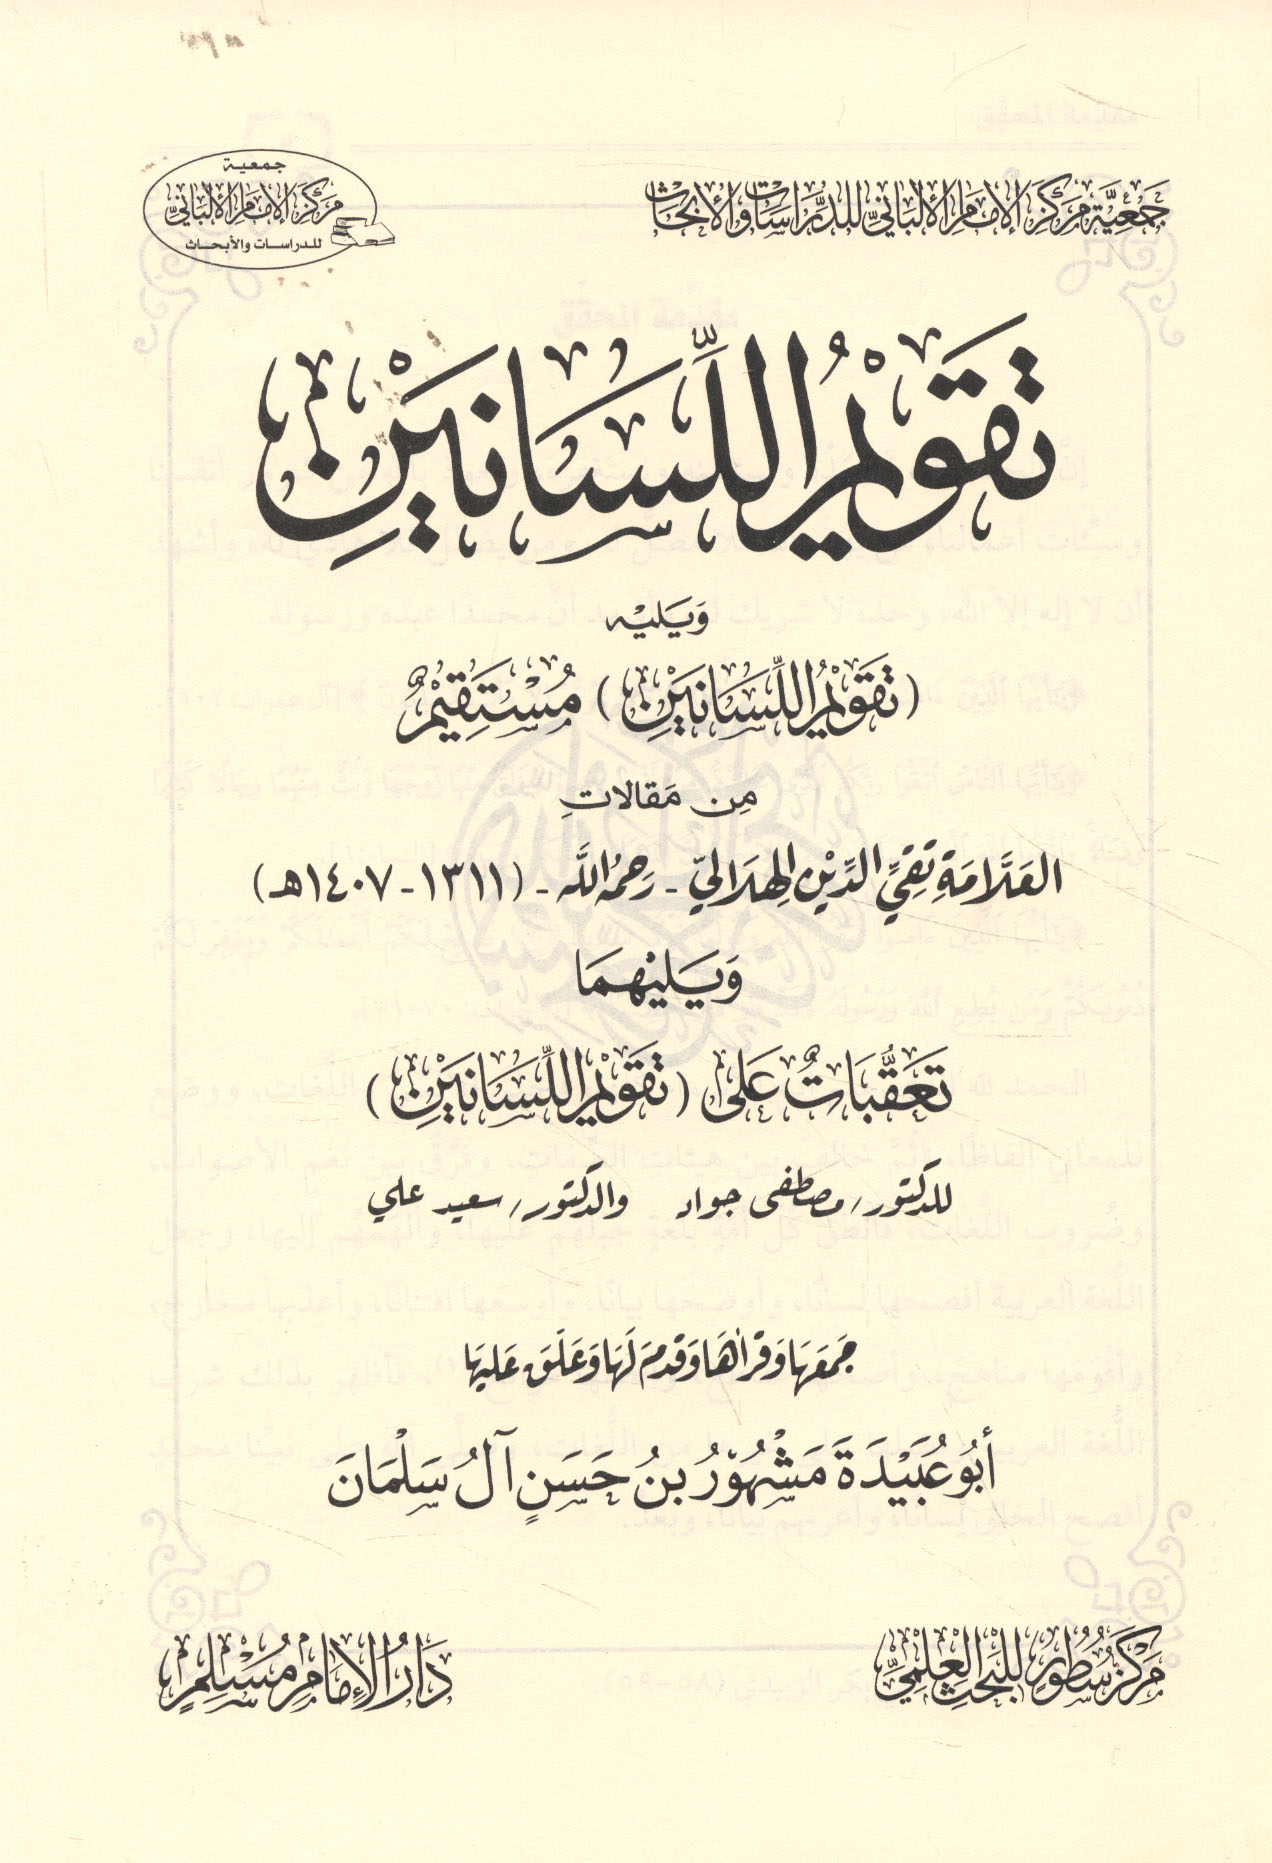 جمعية مركز الإمام الألباني للدراسات والأبحاث
جمعية
مركز الإمام الألباني
للدراسات والأبحاث
تَقْوِيْمُ اللِّسَانَيْنِ
وَيَليْه
(تَقْوِيْمُ اللِّسَانَيْنِ) مُسْتَقِيْمٌ
مِن مَقَالاتِ
العَلَّامَةِ تَقِيِّ الدِّيْنِ الهِلَالِيّ - رحمهُ الله - (١٣١١ - ١٤٠٧هـ)
وَيَليْهِمَا
تَعَقُّبَاتٌ عَلَى (تَقْوِيْمِ اللِّسَانَيْنِ)
للدكتور/ مصطفى جواد والدكتور/ سعيد علي
جَمَعَهَا وَقَرَأَهَا وَقَدمَ لَهَا وَعَلَّقَ عَليهَا
أبُو عُبَيْدَةَ مَشْهُوْرُ بنُ حَسَنٍ آلُ سَلْمَانَ
مَرْكَزُ سُطُورٍ للبَحْثِ العِلْمِيِّ
دَارُ الإِمَامِ مُسْلِمٍ